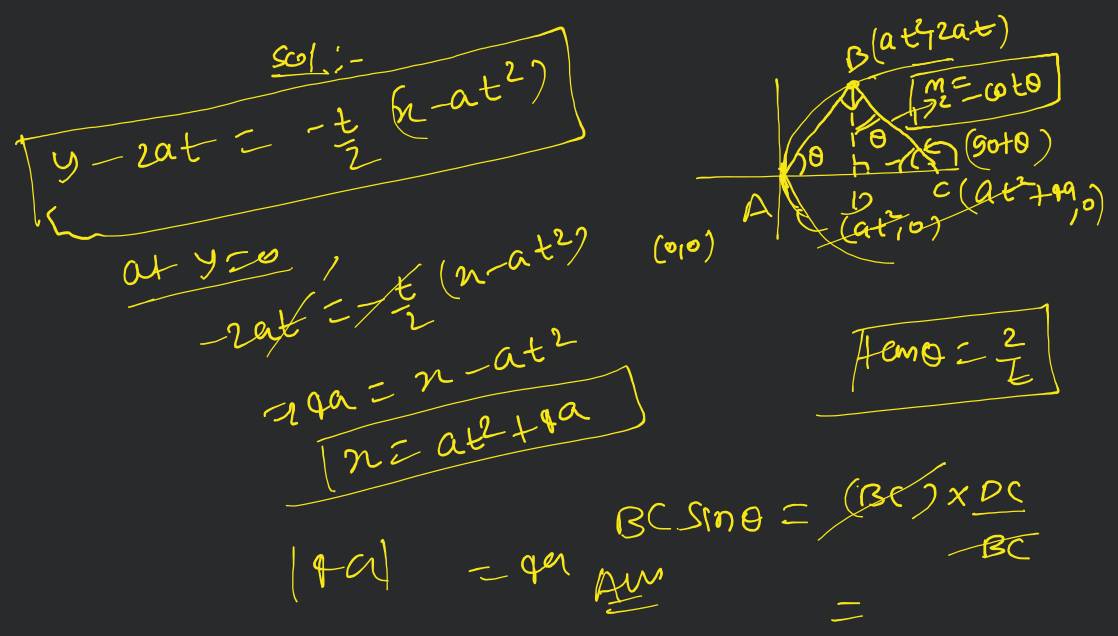 Sol:-
y - 2at = -t/2 (x - at²)
at y=0,
-2at = -t/2 (x - at²)
⇒ 4a = x - at²
x = at² + 4a
|4a| = 4a Ans
B(at², 2at)
m = -cotθ
2
θ
θ
(90+θ)
A
D
C (at²+4a, 0)
(at², 0)
(0,0)
tanθ = 2/t
BC sinθ = (BC) × DC/BC
=